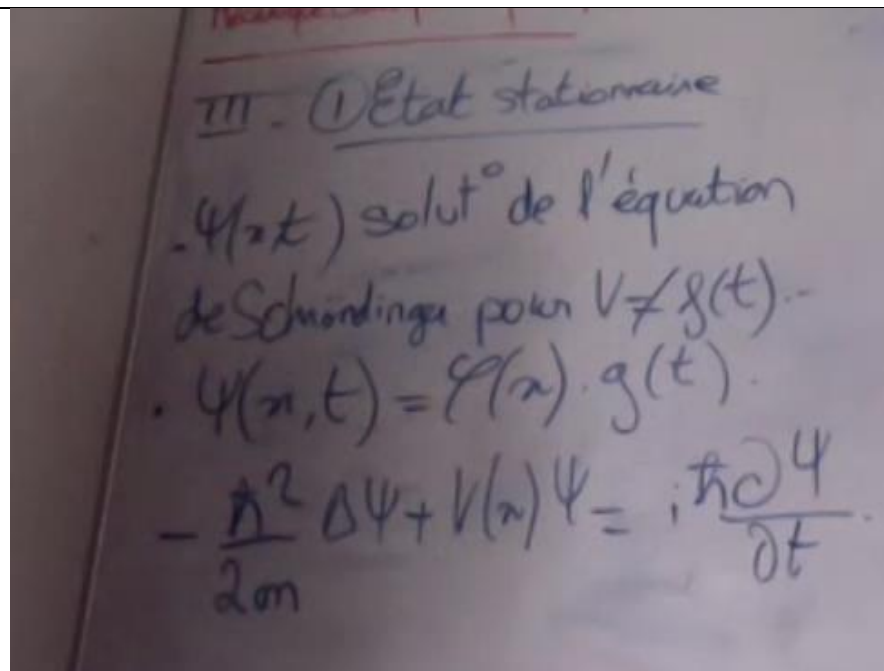 III. ① Etat stationnaire
. Ψ(x,t) solut° de l'équation
de Schrödinger pour V ≠ f(t).
. Ψ(x,t) = φ(x). g(t).
- ħ²/2m ΔΨ + V(x)Ψ = iħ ∂Ψ/∂t.